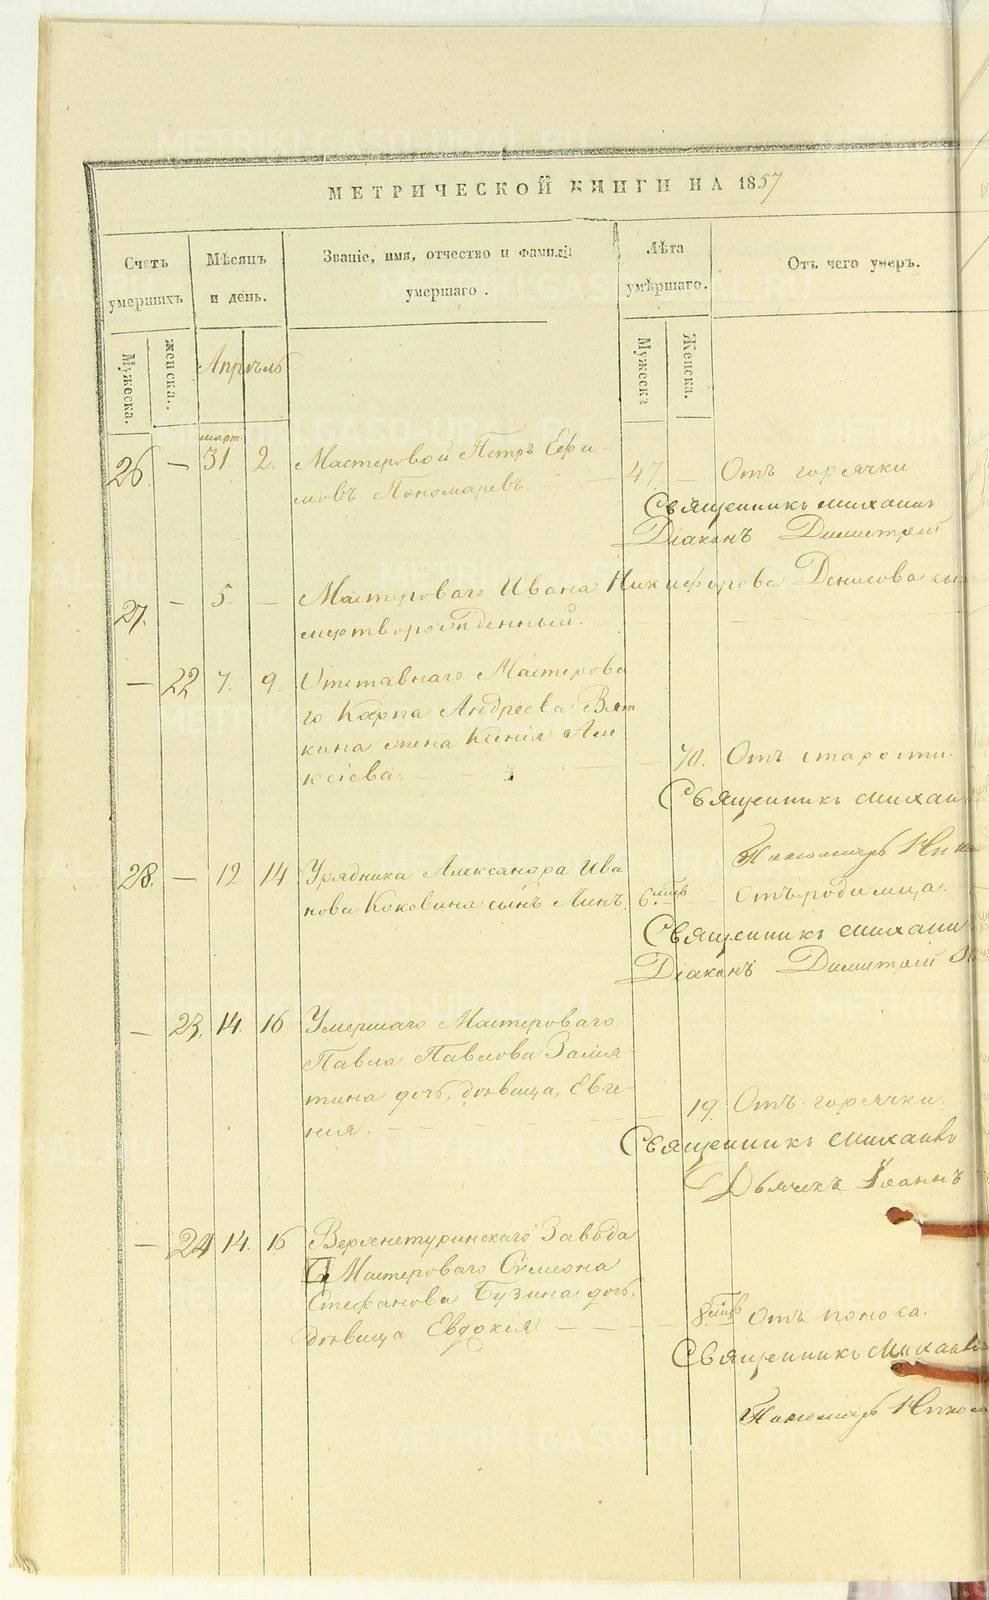 МЕТРИЧЕСКОЙ КНИГИ НА 1857
Счетъ умершихъ
Мѣсяцъ и день.
Званіе, имя, отчество и фамилія умершаго.
Лѣта умѣршаго.
Отъ чего умеръ.
Мужеска.
женска.
Апрѣль
Мужеска
Женска.
март.
26. — 31. 2. Мастеровой Петръ Ефи-
мовъ Пономаревъ. 47. — Отъ горячки
Священникъ Михаилъ
Діаконъ Димитрій
27. — 5. — Мастероваго Ивана Никифорова Денисова сы
мертворожденный.
— 22 7. 9. Отставнаго Мастерова
го Карпа Андреева Вят
кина жена Ксенія Але
ксіева. — 70. Отъ старости.
Священникъ Михаи
Пономарь Нико
28. — 12 14 Урядника Александра Ива
нова Коковина сынъ Линъ. 6. мѣс — Отъ родимца.
Священникъ Михаил
Діаконъ Димитрій
— 23. 14. 16 Умершаго Мастероваго
Павла Павлова Замя-
тина дочь, дѣвица, Евге-
нія. — 19 Отъ горячки.
Священникъ Михаилъ
Дьячекъ Іоаннъ
— 24 14. 16 Верхнетуринскаго Завода
Мастероваго Сѵмеона
Стефанова Бузина дочь,
дѣвица Евдокія — 8. мѣс Отъ поноса.
Священникъ Михаилъ
Пономарь Никол